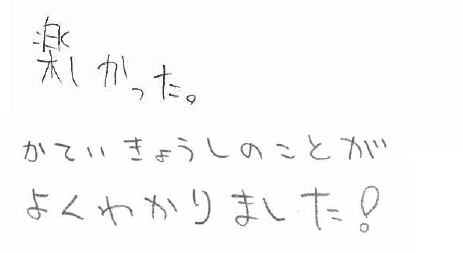 楽しかった。
かていきょうしのことが
よくわかりました!